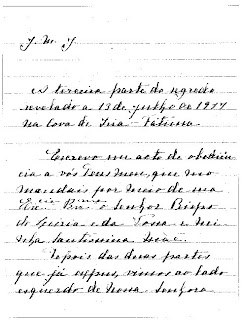 J. M. J.
A terceira parte do segredo
revelado a 13 de julho de 1917
na Cova de Iria-Fátima.
Escrevo em acto de obediên
cia a vós Deus meu, que mo
mandais por meio de sua
Ex.cia Rev.ma o Senhor Bispo
de Leiria e da Vossa e mi
nha Santissima Mãe.
Depois das duas partes
que já expus, vimos ao lado
esquerdo de Nossa Senhora